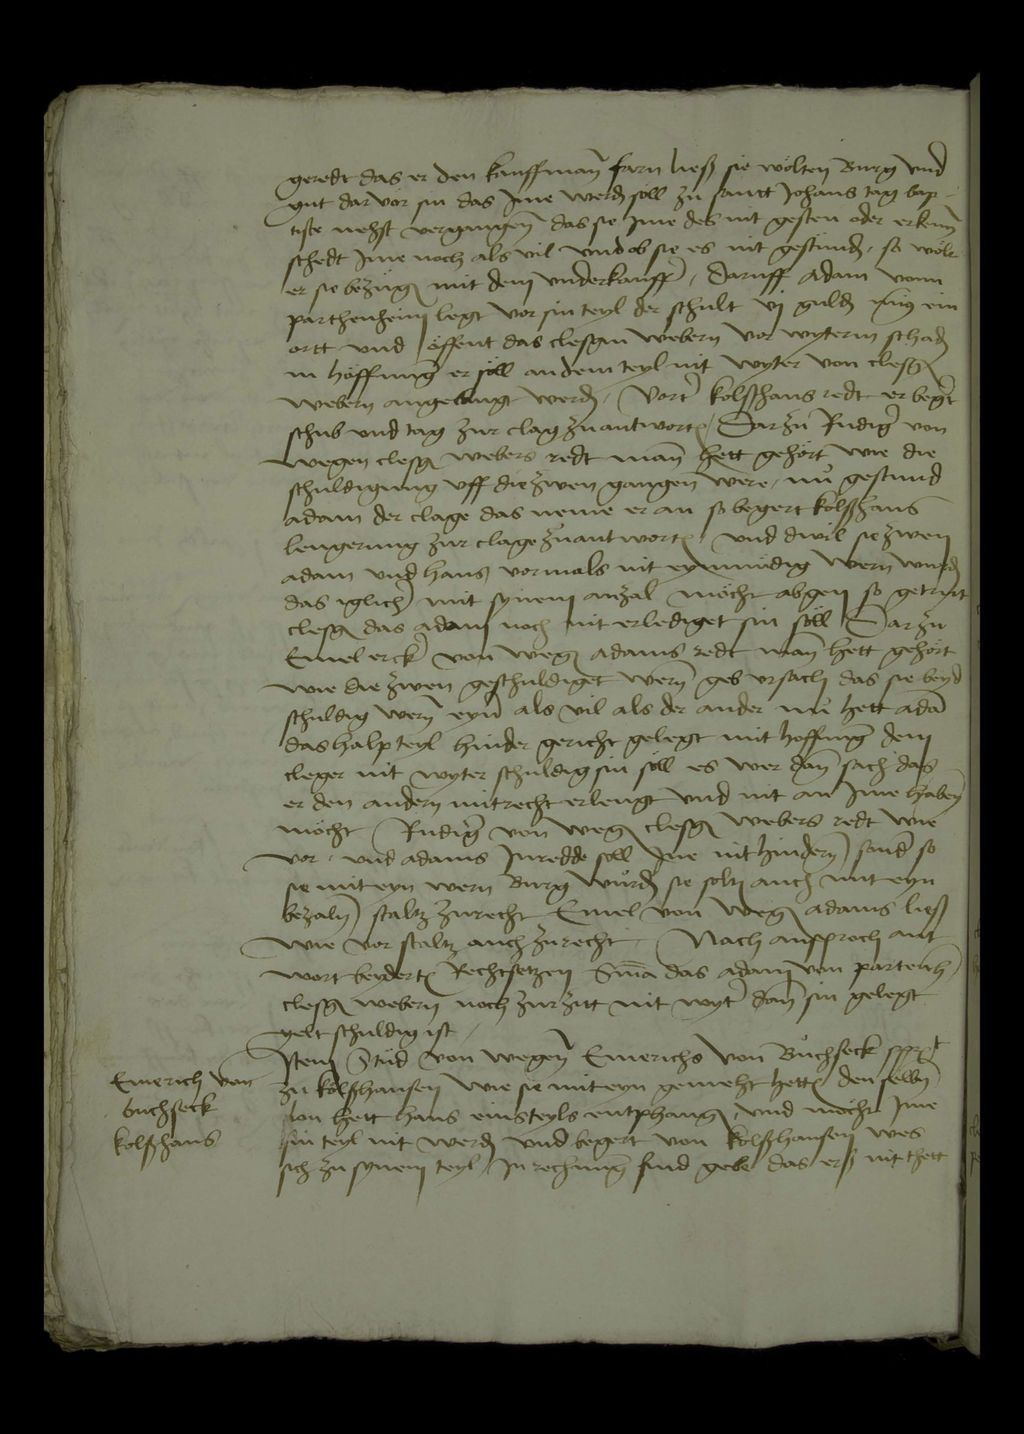 geredt das er den kauffman farn ließ sie wolten Burg vnd
gut dar vor sin das Ime werd soll zu santt Johans tag bap-
tiste nehst vergangen das sie Ime des nit gesten oder erken
schedt Ime noch als vil vnd ob sie es nit gestund, so wolt
er sie bezugen mit dem vnderkauffer, Daruff Adam vom
parthenheim legt vor sin teyl der schult vj guld myn ein
ortt vnd offent das clesgin webern vor wyterm schaden
in hoffnung er soll an dem teyl nit wyter von clesgin
webern angelangt werden, Vort kolßhans redt er begert
schub vnd tag zur clag zu antworten, Darzu Rudiger von
wegen clesgin webers redt man hett gehört wie die
schuldigung vff die zwen gangen were, nu gestund
adam der clage das neme er an so begert kolßhans
lengerung zur clage zu antworten vnd diwil sie zwen
adam vnd hans vormals nit eynmudig wern wurden
das iglicher mit synem anzal möcht abgen so getruwt
clesgin das adam noch nit erlediget sin soll Dar zu
Emelerck von wegen adams redt man hett gehort
wie die zwen geschuldiget wern geb vrsach das sie beyd
schuldig wern eyner als vil als der ander nu hett adam
das halpteyl hinder gericht gelegt mit hoffnung dem
cleger nit wyter schuldig sin soll es wer dan sach das
er den andern mit recht erlengt vnd nit an Ime haben
möcht Rudiger von wegen clesgin webers redt wie
vor, vnd adams Inredde soll Ine nit hindern sonder so
sie mit eyn wern Burg wurden sie solten auch mit eyn
bezaln staltz zu recht Emel von wegen adams ließ
wie vor staltz auch zu recht, Nach ansproch ant
wort beyderten Rechtsetzen Sma das adam von partenh
clesgin webern noch zur zitt nit wyter dan sin gelegt
gelt schuldig ist,
Item Stud von wegen Emerichs von Buchseck spricht
zu kolßhansen wie sie mit eyn gemeht hetten den selbn
lon hett hans einsteyls entphangen, vnd möcht Ime
sin teyl nit werden vnd begert von kolßhansen wes
sich zu synem teyl In rechnung find gebe das erß nit thett
Emerich von
buchseck
kolßhans